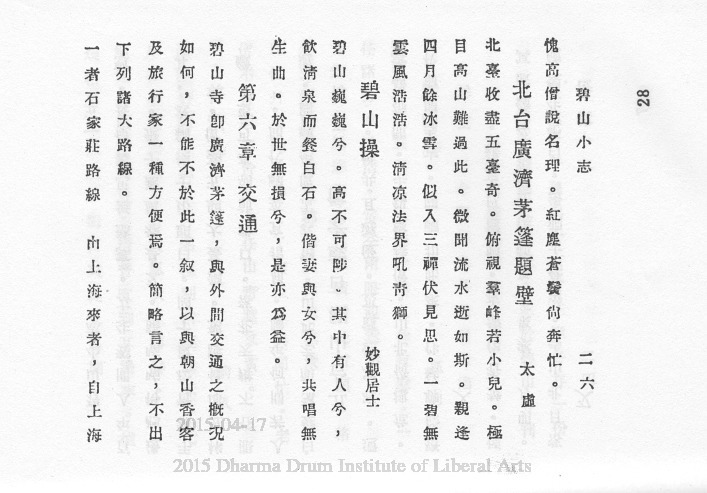 28
碧山小志 二六
愧高僧說名理。紅塵蒼鬢尙奔忙。
北台廣濟茅篷題壁 太虛
北臺收盡五臺奇。俯視羣峰若小兒。極
目高山難過此。微聞流水逝如斯。親逢
四月餘冰雪。似入三禪伏見思。一碧無
雲風浩浩。淸凉法界吼靑獅。
碧山操 妙觀居士
碧山巍巍兮。高不可陟、其中有人兮，
飲淸泉而餐白石。偕妻與女兮，共唱無
生曲。於世無損兮，是亦爲益。
第六章 交通
碧山寺卽廣濟茅篷，與外間交通之概況
如何，不能不於此一叙，以與朝山香客
及旅行家一種方便焉。簡略言之，不出
下列諸大路線。
一者石家莊路線 由上海來者，自上海
2015-04-17
2015 Dharma Drum Institute of Liberal Arts